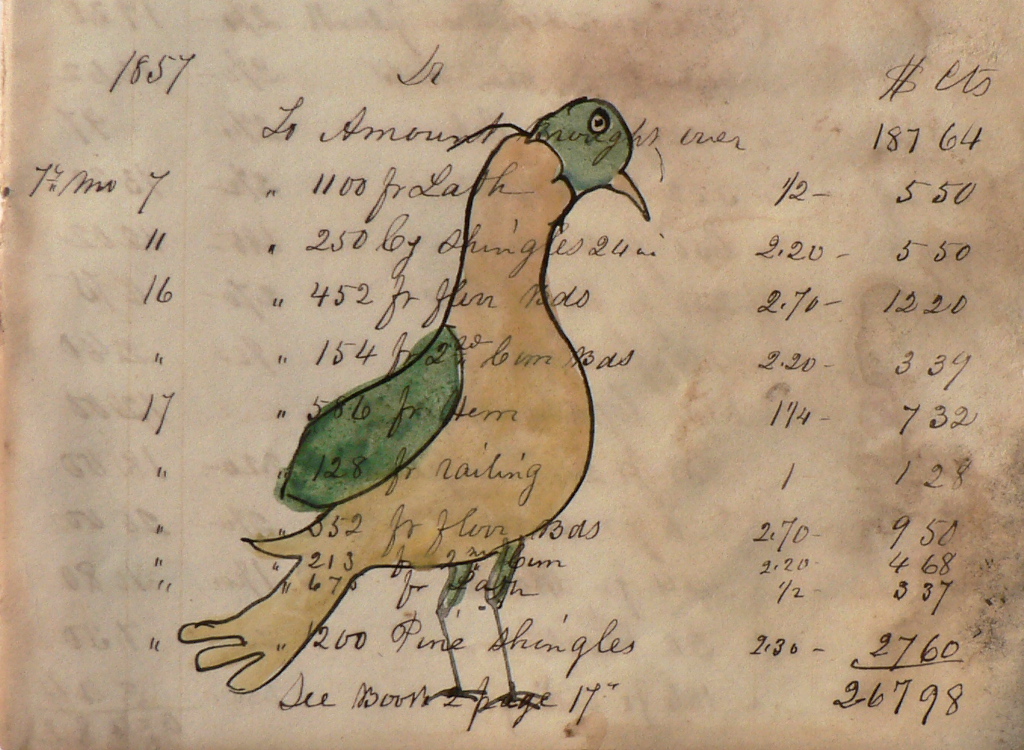 1857 Dr $ Cts
To Amount Brought over 187 64
7th Mo 7 " 1100 fr Lath 1/2 - 5 50
11 " 250 Cy Shingles 24 in 2.20 - 5 50
16 " 452 fr floor Bds 2.70 - 12 20
" " 154 fr 2nd Com Bds 2.20 - 3 39
17 " 586 fr Hem 1 1/4 - 7 32
" " 128 fr railing 1 1 28
" " 352 fr floor Bds 2.70 - 9 50
" " 213 fr 2nd Com 2.20 - 4 68
" " 675 fr Lath 1/2 - 3 37
" " 1200 Pine Shingles 2.30 - 27 60
See Book 2 page 17 267 98